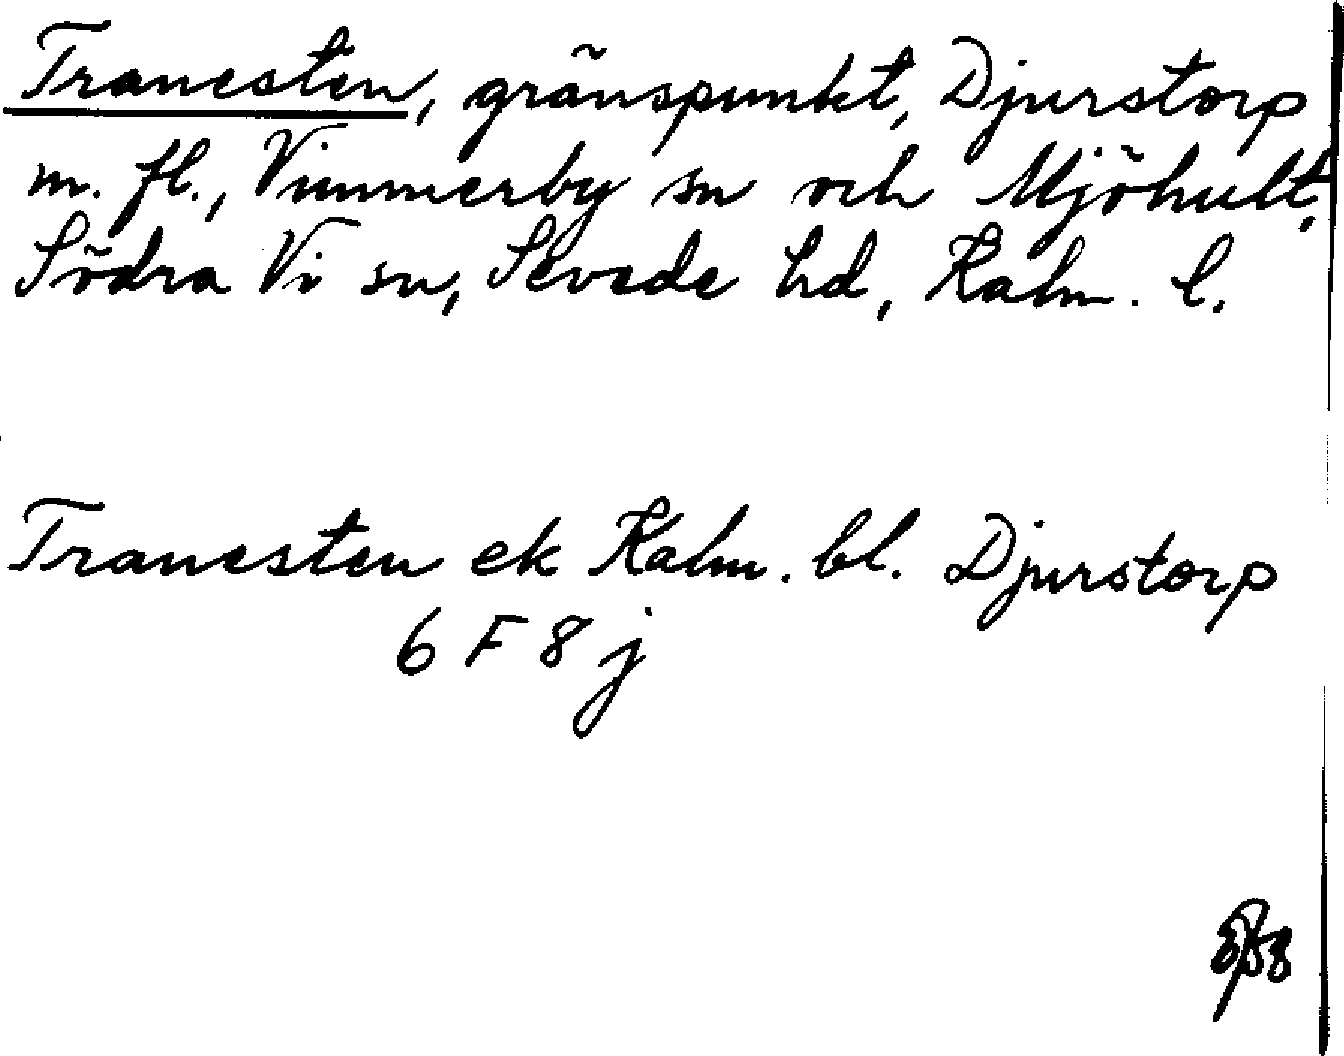 Tranesten, gränspunkt, Djurstorp
m. fl., Vimmerby sn och Mjöhult,
Södra Vi sn, Sevede hd, Kalm. l.
Tranesten ek Kalm. bl. Djurstorp
6 F 8 j